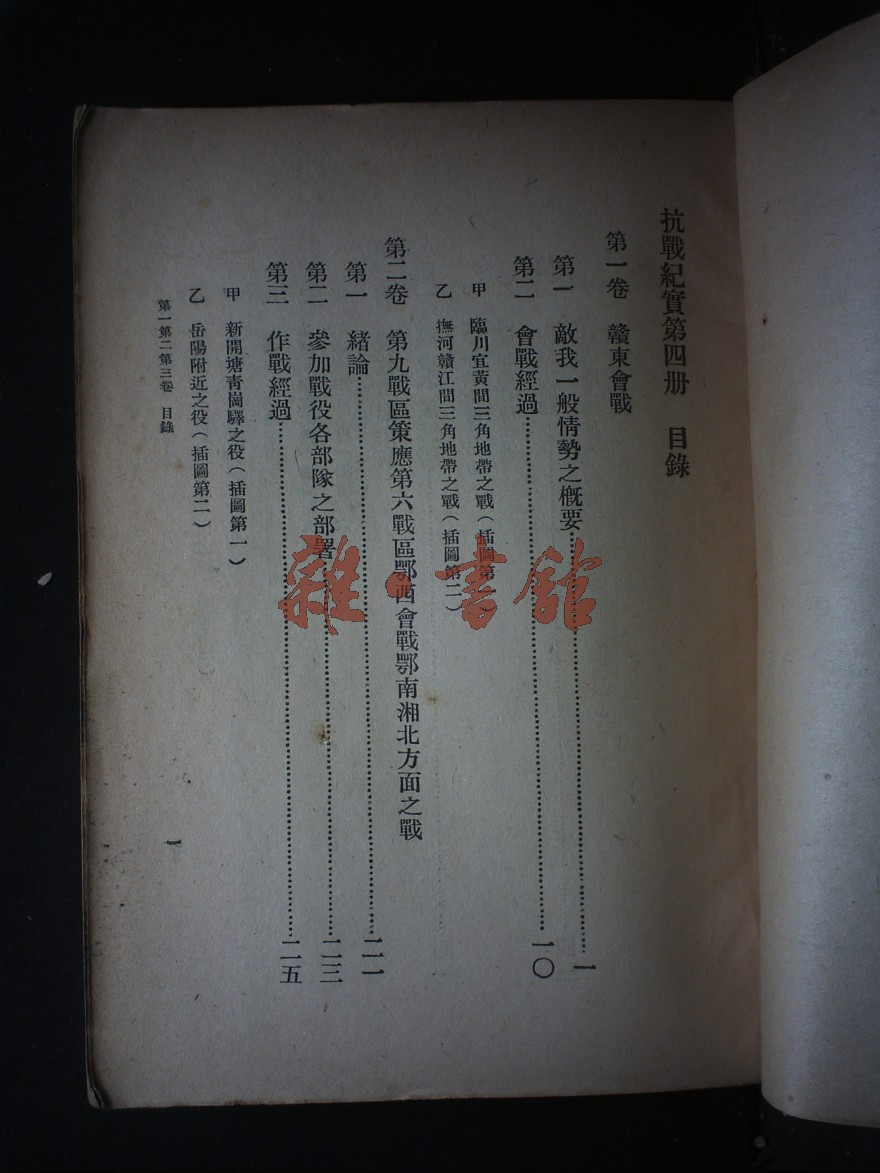 抗戰紀實第四册　目錄
第一卷　贛東會戰
第一　敵我一般情勢之概要……一
第二　會戰經過……一〇
甲　臨川宜黃間三角地帶之戰（插圖第一）
乙　撫河贛江間三角地帶之戰（插圖第二）
第二卷　第九戰區策應第六戰區鄂西會戰鄂南湘北方面之戰
第一　緒論……二一
第二　參加戰役各部隊之部署……二三
第三　作戰經過……二五
甲　新開塘青崗驛之役（插圖第一）
乙　岳陽附近之役（插圖第二）
第一第二第三卷　目錄
一
雜·書館